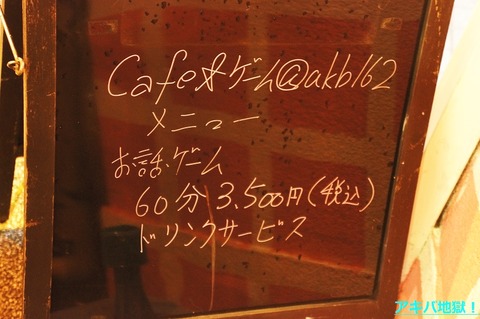 Cafe&ゲーム@akb162
メニュー
お話・ゲーム
60分 3.500円(税込)
ドリンクサービス
アキバ地獄！